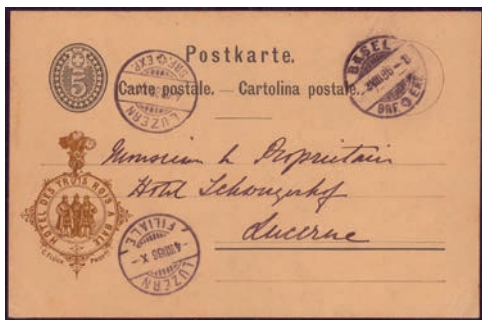 Postkarte.
5
Carte postale. — Cartolina postale.
BASEL
BRF. EXP.
LUZERN
BRF. EXP.
Monsieur le Propriétaire
Hotel Schweizerhof
Lucerne
HÔTEL DES TROIS ROIS A BÂLE
LUZERN
FILIALE